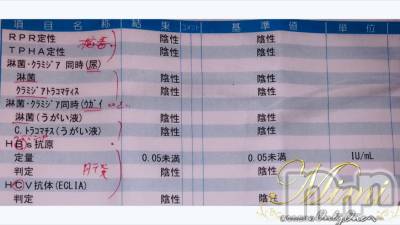 項目名称 結果 コメント 基準値 単位
RPR定性 陰性 陰性
TPHA定性 陰性 陰性
梅毒
淋菌・クラミジア同時(尿)
淋菌 陰性 陰性
クラミジアトラコマティス 陰性 陰性
淋菌・クラミジア同時(ウガイ
淋菌(うがい液) 陰性 陰性
C.トラコマチス(うがい液) 陰性 陰性
HBs抗原
定量 0.05未満 0.05未満 IU/mL
判定 陰性 陰性
肝炎
HCV抗体(ECLIA)
判定 陰性 陰性